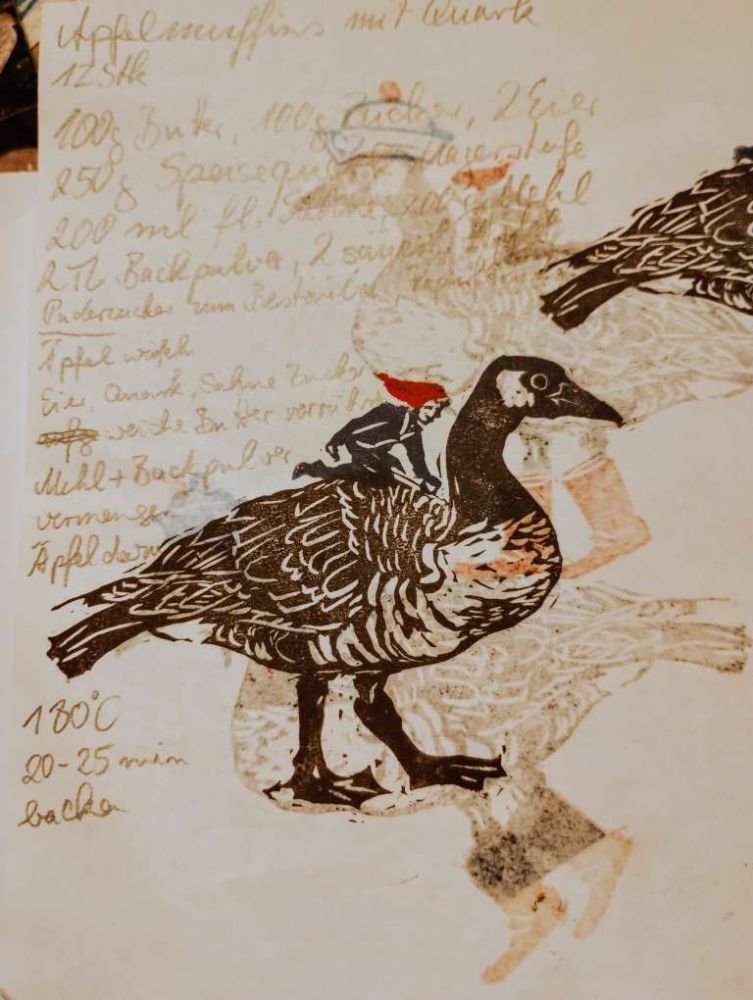 Apfelmuffins mit Quark
12 Stk
100g Butter, 100g Zucker, 2 Eier
250g Speisequark
200 ml fl. Sahne, Mehl
2 TL Backpulver, 2 säuerl.
Puderzucker zum Bestäuben,
Äpfel
Eier, Quark, Sahne Zucker
weiche Butter verrühren
Mehl + Backpulver
vermengen
Äpfel
180°C
20-25 min
backen